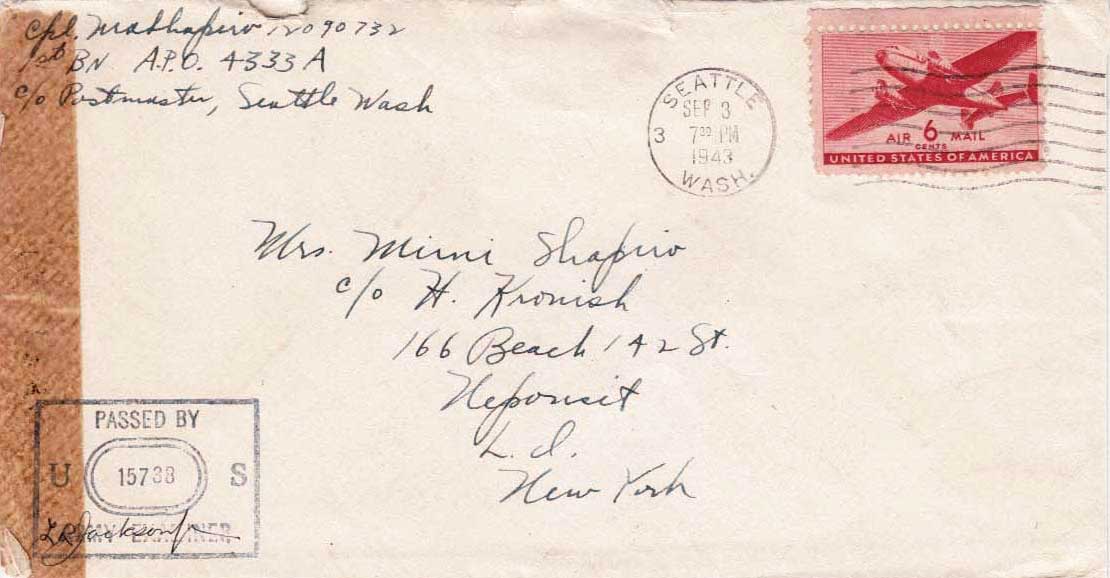 Cpl. M A Shapiro 12090732
1st BN A.P.O. 4333 A
c/o Postmaster, Seattle Wash
SEATTLE
SEP 3
3 7 30 PM
1943
WASH.
AIR 6 MAIL
CENTS
UNITED STATES OF AMERICA
Mrs. Mimi Shapiro
c/o H. Kronish
166 Beach 142 St.
Neponsit
L. I.
New York
PASSED BY
U 15738 S
ARMY EXAMINER
Jackson